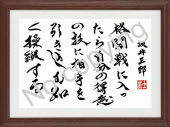 坂井三郎
格闘戦に入っ
たら自分の得意
の技に相手を
引き込む如
く操縦する
No Copying